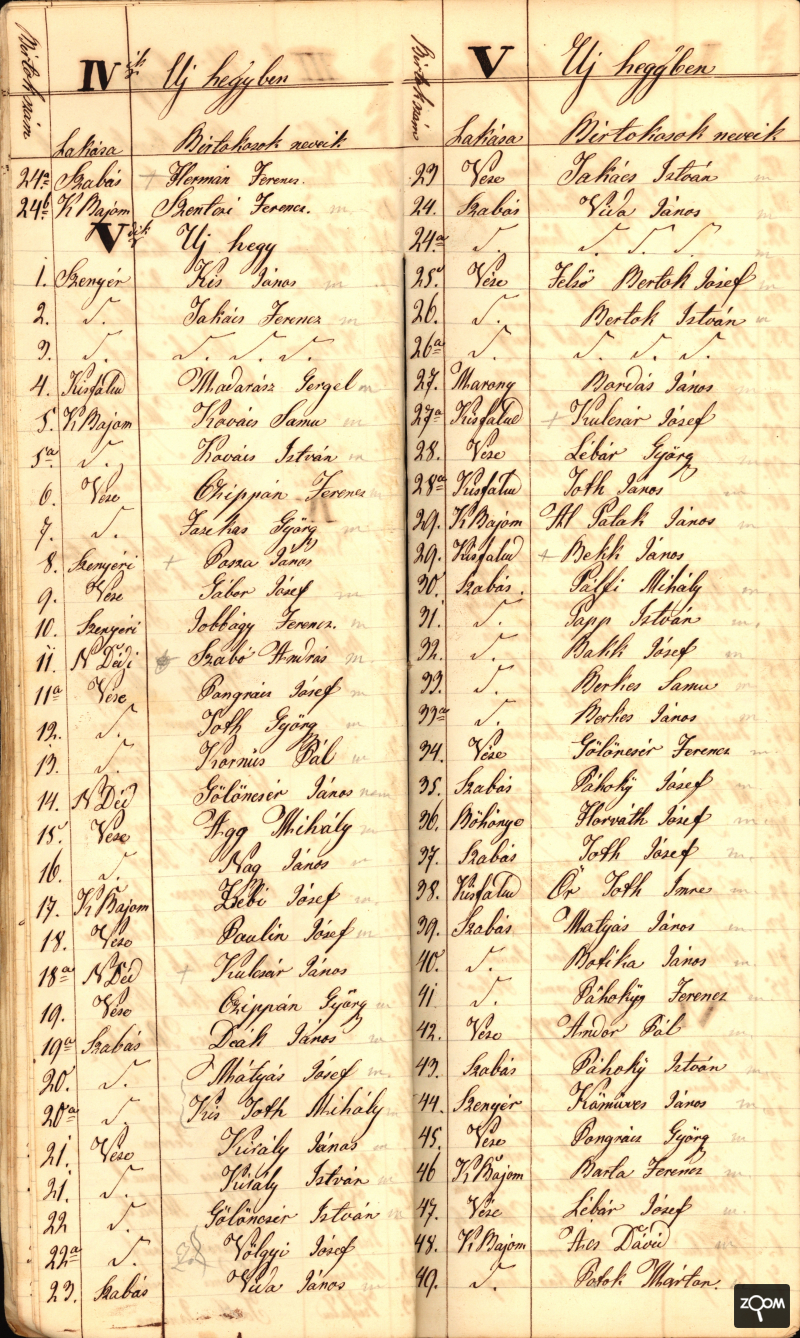 Birtok szám
IV ik Uj hegyben
Lakása Birtokosok neveik
24a Szabás + Herman Ferencz
24b K Bajom Szentesi Ferencz. m
V dik Uj hegy
1. Szenyér Kis János m
2. S. Takács Ferencz m
3. S. S. S. S.
4. Kisfalud Madarász Gergel m
5. K Bajom Kovács Samu m
5a S. Kovács István m
6. Vése Czippán Ferencz m
7. S. Fazekas Györg m
8. Szenyéri + Posza János
9. Vése Gábor Jósef m
10. Szenyéri Jobbágy Ferencz. m
11. N Dédi + Szabó András m
11a Vése Pongrácz Jósef m
12. S. Toth Györg m
13. S. Kornus Pál m
14. N Déd Gölöncsér János
15. Vése Agg Mihály m
16. S. Nag János m
17. K Bajom Zébi Jósef m
18. Vése Paulin Jósef m
18a N Déd + Kulcsár János
19. Vése Czippán Györg m
19a Szabás Deák János m
20. S. Mátyás Jósef m
20a S. Kis Toth Mihály m
21. Vése Király János m
21. S. Király István m
22 S. Gölöncsér István m
22a S. Völgyi Jósef
23. Szabás Vida János m
Birtok szám
V Uj hegyben
Lakása Birtokosok neveik
23 Vése Takács István m
24. Szabás Vida János m
24a S. S. S. S. m
25. Vése Felső Bertok Jósef m
26. S. Bertok István m
26a S. S. S. S.
27. Marony Bordás János m
27a Kisfalud + Kulcsár Jósef
28. Vése Lébár Györg
28a Kisfalud Toth János m
29. K Bajom Al Patak János m
29. Kisfalud + Bekk János
30. Szabás. Pálfi Mihály m
31. S. Papp István m
32. S. Bakk Jósef m
33. S. Berkes Samu m
33a S. Berkes János m
34. Vése Gölöncsér Ferencz m
35. Szabás Páhoky Jósef m
36. Böhönye Horváth Jósef m
37. Szabás Toth Jósef m
38. Kisfalud Őr Toth Imre m
39. Szabás Matyás János m
40. S. Botika János m
41 S. Páhoky Ferencz m
42. Vése Andor Pál m
43. Szabás Páhoky István m
44. Szenyér Kömüves János m
45. Vése Pongrácz Györg m
46 K Bajom Barta Ferencz m
47. Vése Lébár Jósef m
48. K Bajom Ács Dávid m
49. S. Potok Márton.
ZOOM